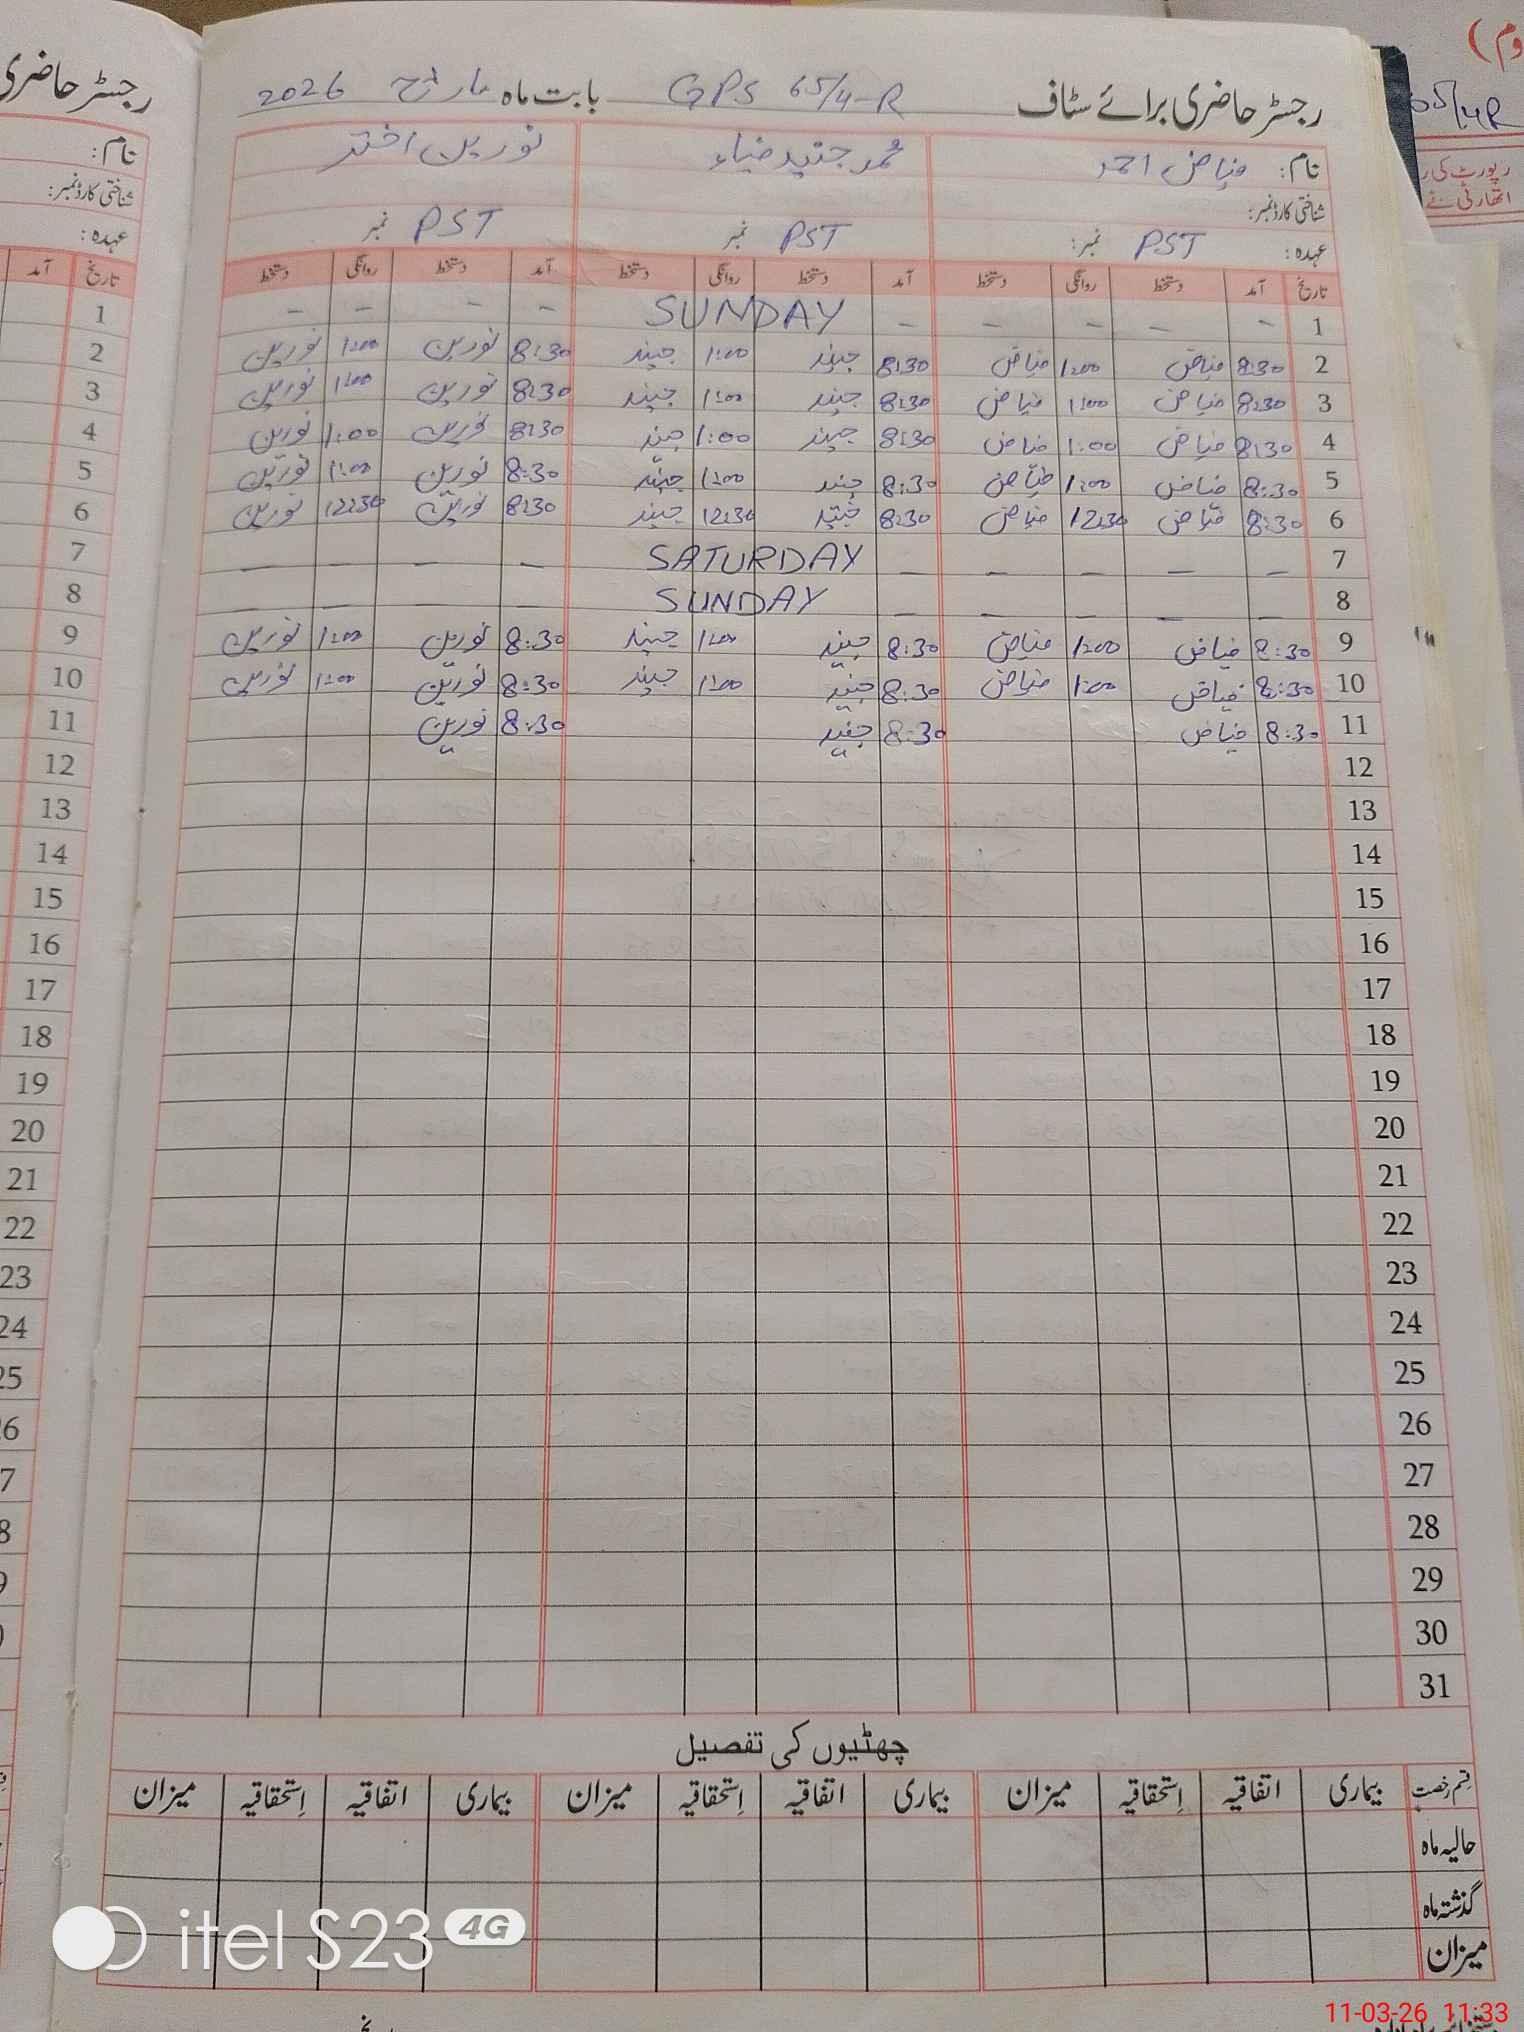 رجسٹر حاضری برائے سٹاف GPS 65/4-R بابت ماہ مارچ 2026
نام: فیاض احمد محمد جنید ضیاء نورین اختر
شناختی کارڈ نمبر:
عہدہ: PST نمبر: PST نمبر PST نمبر
تاریخ آمد دستخط روانگی دستخط آمد دستخط روانگی دستخط آمد دستخط روانگی دستخط
1 – – – – – SUNDAY – – – –
2 8:30 فیاض 1:00 فیاض 8:30 جنید 1:00 جنید 8:30 نورین 1:00 نورین
3 8:30 فیاض 1:00 فیاض 8:30 جنید 1:00 جنید 8:30 نورین 1:00 نورین
4 8:30 فیاض 1:00 فیاض 8:30 جنید 1:00 جنید 8:30 نورین 1:00 نورین
5 8:30 فیاض 1:00 فیاض 8:30 جنید 1:00 جنید 8:30 نورین 1:00 نورین
6 8:30 فیاض 12:30 فیاض 8:30 جنید 12:30 جنید 8:30 نورین 12:30 نورین
7 – – – – – SATURDAY – – – –
8 – – – – – SUNDAY – – – –
9 8:30 فیاض 1:00 فیاض 8:30 جنید 1:00 جنید 8:30 نورین 1:00 نورین
10 8:30 فیاض 1:00 فیاض 8:30 جنید 1:00 جنید 8:30 نورین 1:00 نورین
11 8:30 فیاض 8:30 جنید 8:30 نورین
12
13
14
15
16
17
18
19
20
21
22
23
24
25
26
27
28
29
30
31
چھٹیوں کی تفصیل
قسم رخصت بیماری اتفاقیہ استحقاقیہ میزان بیماری اتفاقیہ استحقاقیہ میزان بیماری اتفاقیہ استحقاقیہ میزان
حالیہ ماہ
گذشتہ ماہ
میزان
رجسٹر حاضری
نام:
شناختی کارڈ نمبر:
عہدہ:
تاریخ آمد
1
2
3
4
5
6
7
8
9
10
11
12
13
14
15
16
17
18
19
20
21
22
23
24
25
26
7
8
9
رپورٹ کی
اتھارٹی نے
itel S23 4G
11-03-26 11:33